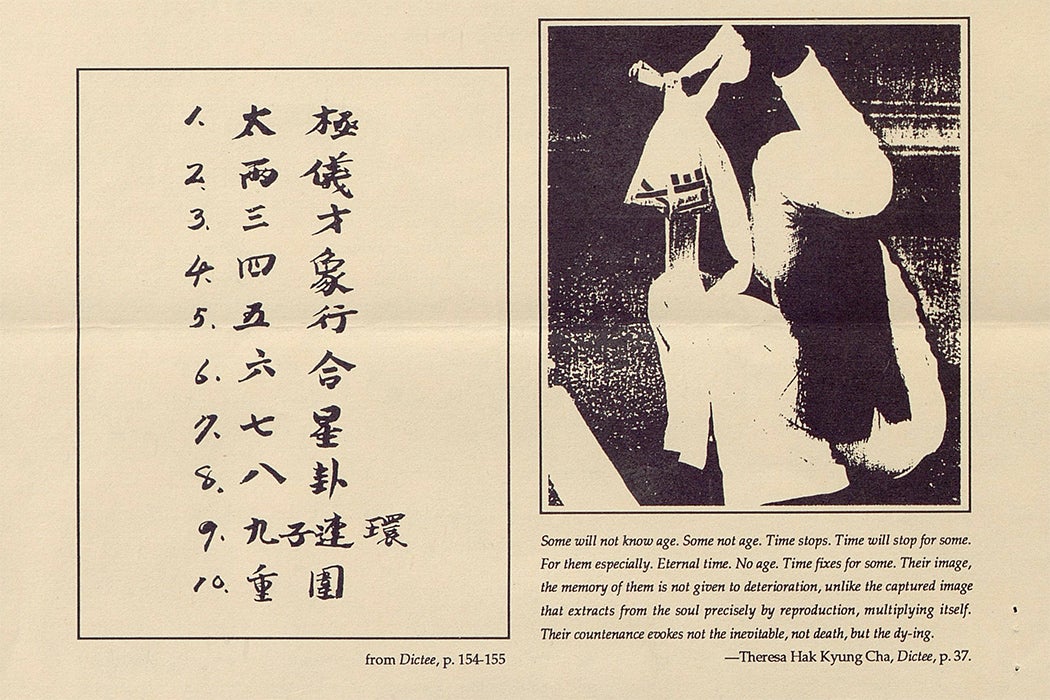 1. 太極
2. 兩儀
3. 三才
4. 四象
5. 五行
6. 六合
7. 七星
8. 八卦
9. 九子連環
10. 重圍
from Dictee, p. 154-155
Some will not know age. Some not age. Time stops. Time will stop for some.
For them especially. Eternal time. No age. Time fixes for some. Their image,
the memory of them is not given to deterioration, unlike the captured image
that extracts from the soul precisely by reproduction, multiplying itself.
Their countenance evokes not the inevitable, not death, but the dy-ing.
—Theresa Hak Kyung Cha, Dictee, p. 37.